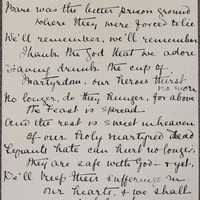 Bare was the bitter prison ground
where they were forced to lie
We'll remember, we'll remember
Thanks the God that we adore
Having drunk the cup of
Martyrdom, our heroes thirst
no more
No longer, do they hunger, for above
the Feast is spread
And the rest is sweet in heaven
of our Holy martyred dead
Tyrants hate can hurt no longer,
they are safe with God - & yet.
We'll keep their sufferings in
our hearts, & we shall